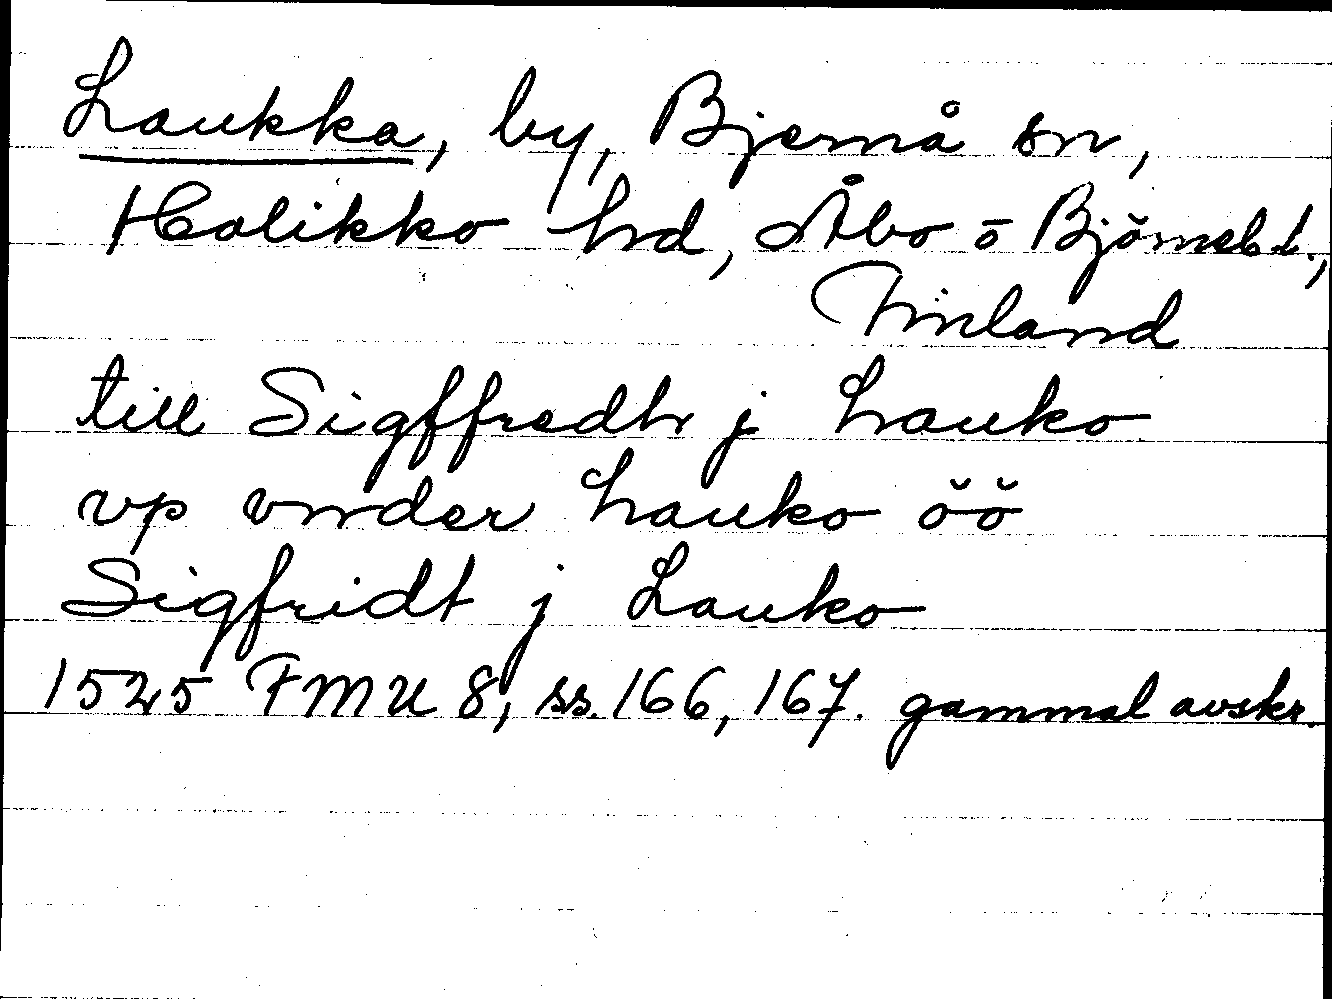 Laukka, by, Bjernå sn,
Halikko hd, Åbo o Björneb. l.,
Finland
till Sigffredh j Lauko
vp vnder Lauko öö
Sigfridt j Lauko
1525 FMU 8, ss. 166, 167. gammal avskr.